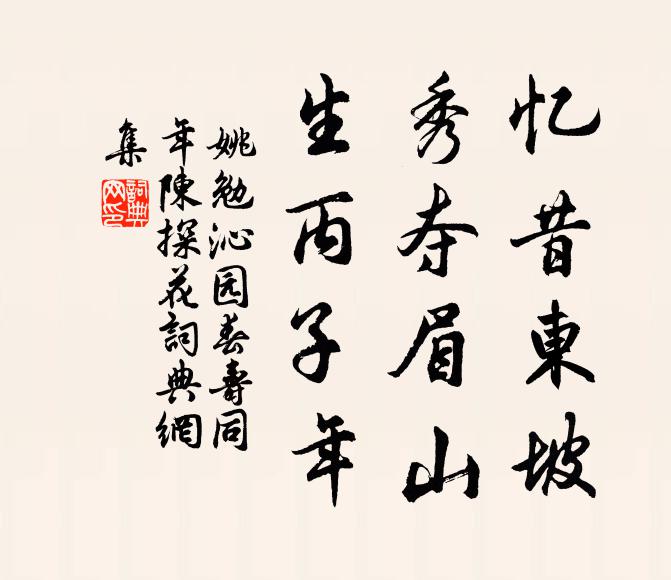 忆昔東坡
秀夺眉山
生丙子年
姚勉沁园春壽同
年陳探花詞典網
集
詞典
网印